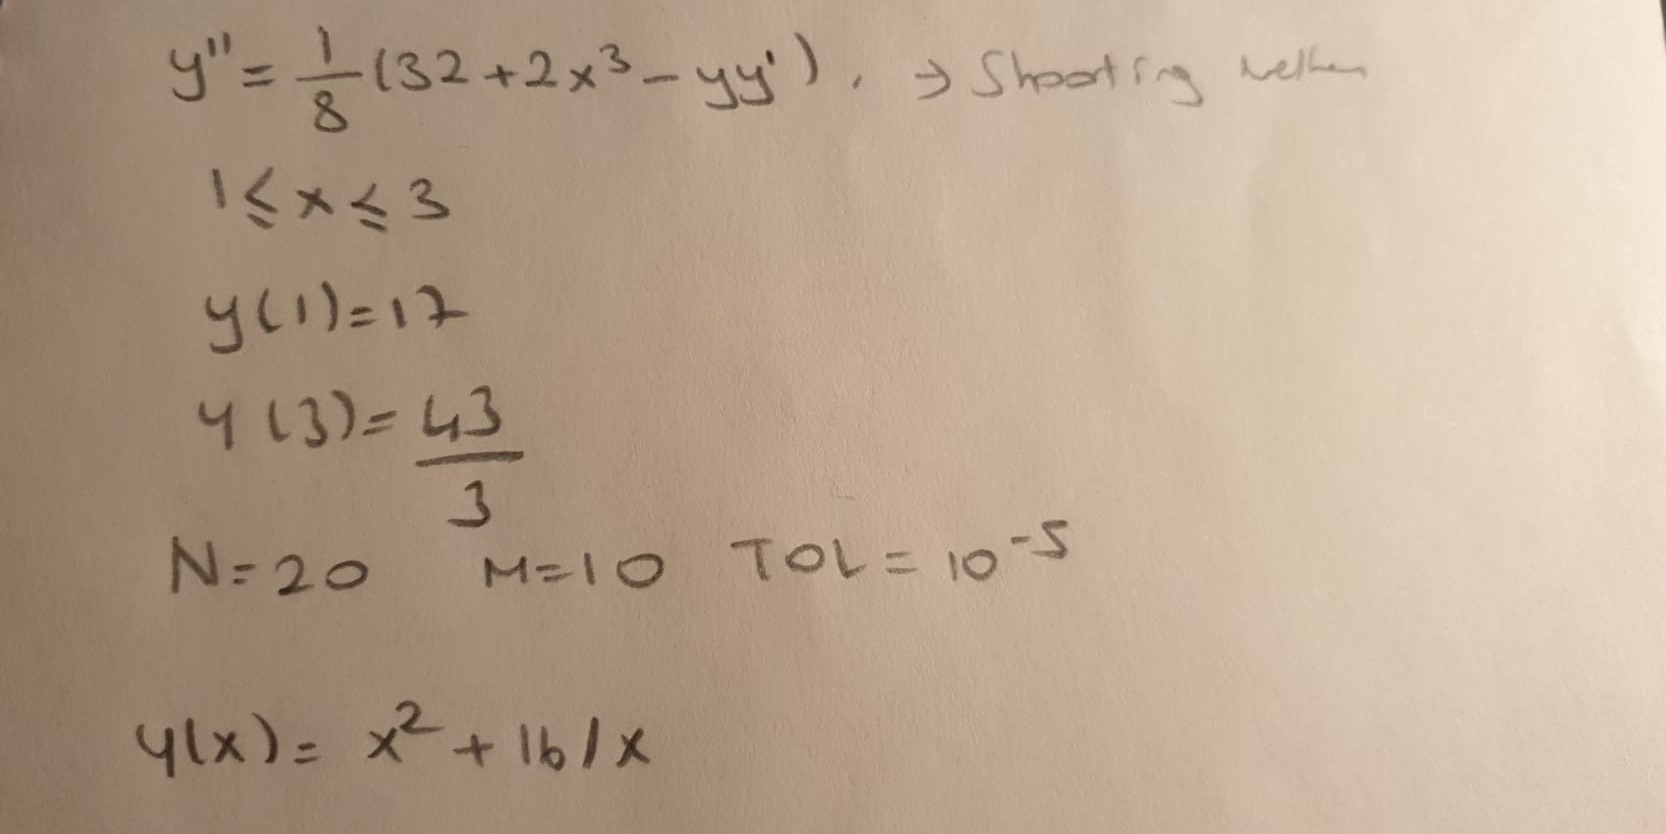 y" = 1/8 (32 + 2x³ - yy'). → Shooting
1 ≤ x ≤ 3
y(1) = 17
y(3) = 43/3
N = 20 M = 10 TOL = 10⁻⁵
y(x) = x² + 16/x